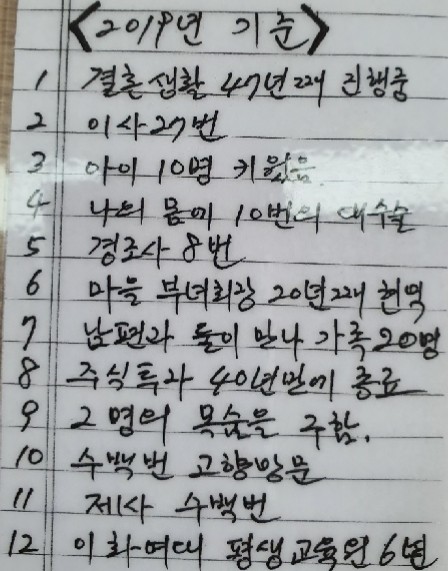 <2019년 기준>
1 결혼생활 47년째 진행중
2 이사 27번
3 아이 10명 키웠음
4 나의 몸에 10번의 대수술
5 경조사 8번
6 마을 부녀회장 20년째 현역
7 남편과 둘이 만나 가족 20명
8 주식투자 40년만에 종료
9 2명의 목숨을 구함.
10 수백번 고향방문
11 제사 수백번
12 이화여대 평생교육원 6년